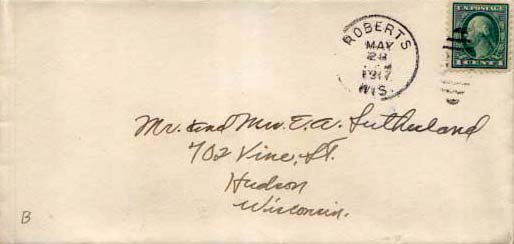 ROBERTS
MAY
28
1917
WIS.
U.S. POSTAGE
1 CENT 1
Mr. and Mrs. E. A. Sutherland
702 Vine, St.
Hudson
Wisconsin.
B